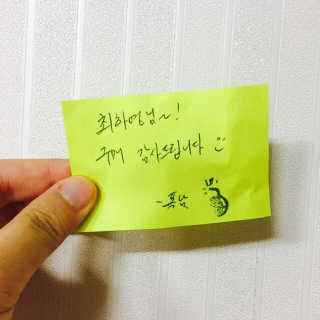 최하영님~!
구매 감사드립니다 :)